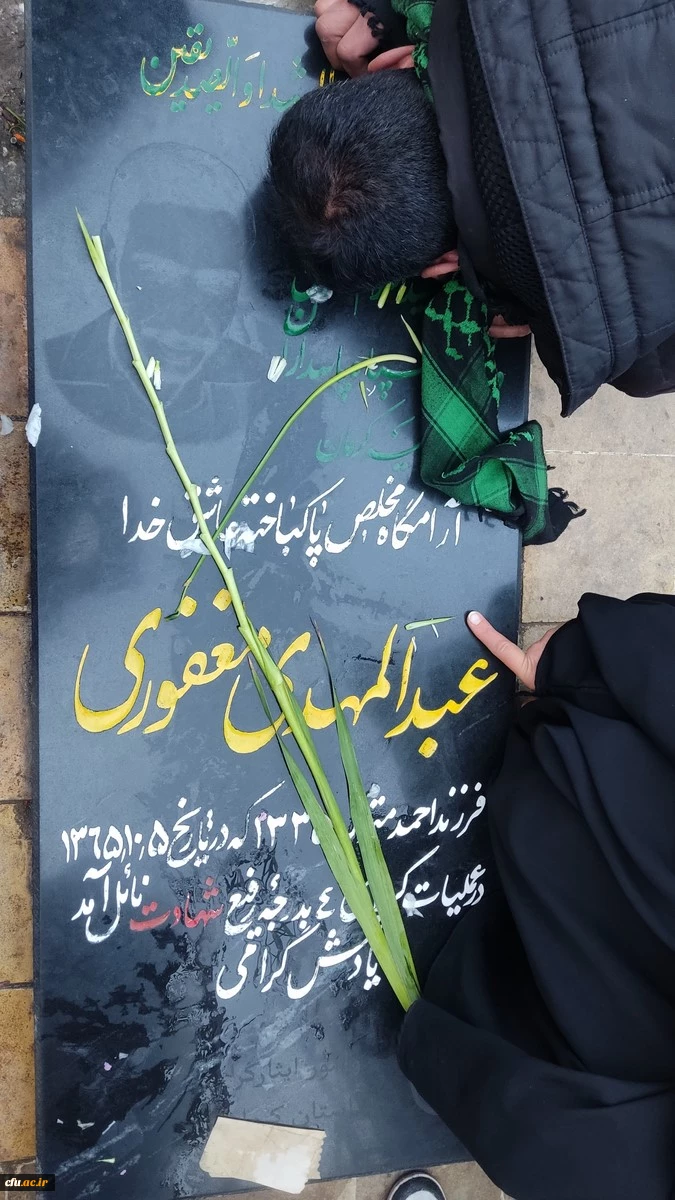 الشهدا و الصدیقین
سپاه پاسدارا
آرامگاه مخلص پاکباخته عاشق خدا
عبدالمهدی مغفوری
فرزند احمد که در تاریخ ۱۳۶۵،۱۰،۵
در عملیات ٤ بدرجۀ رفیع شهادت نائل آمد
یادش گرامی
cfu.ac.ir